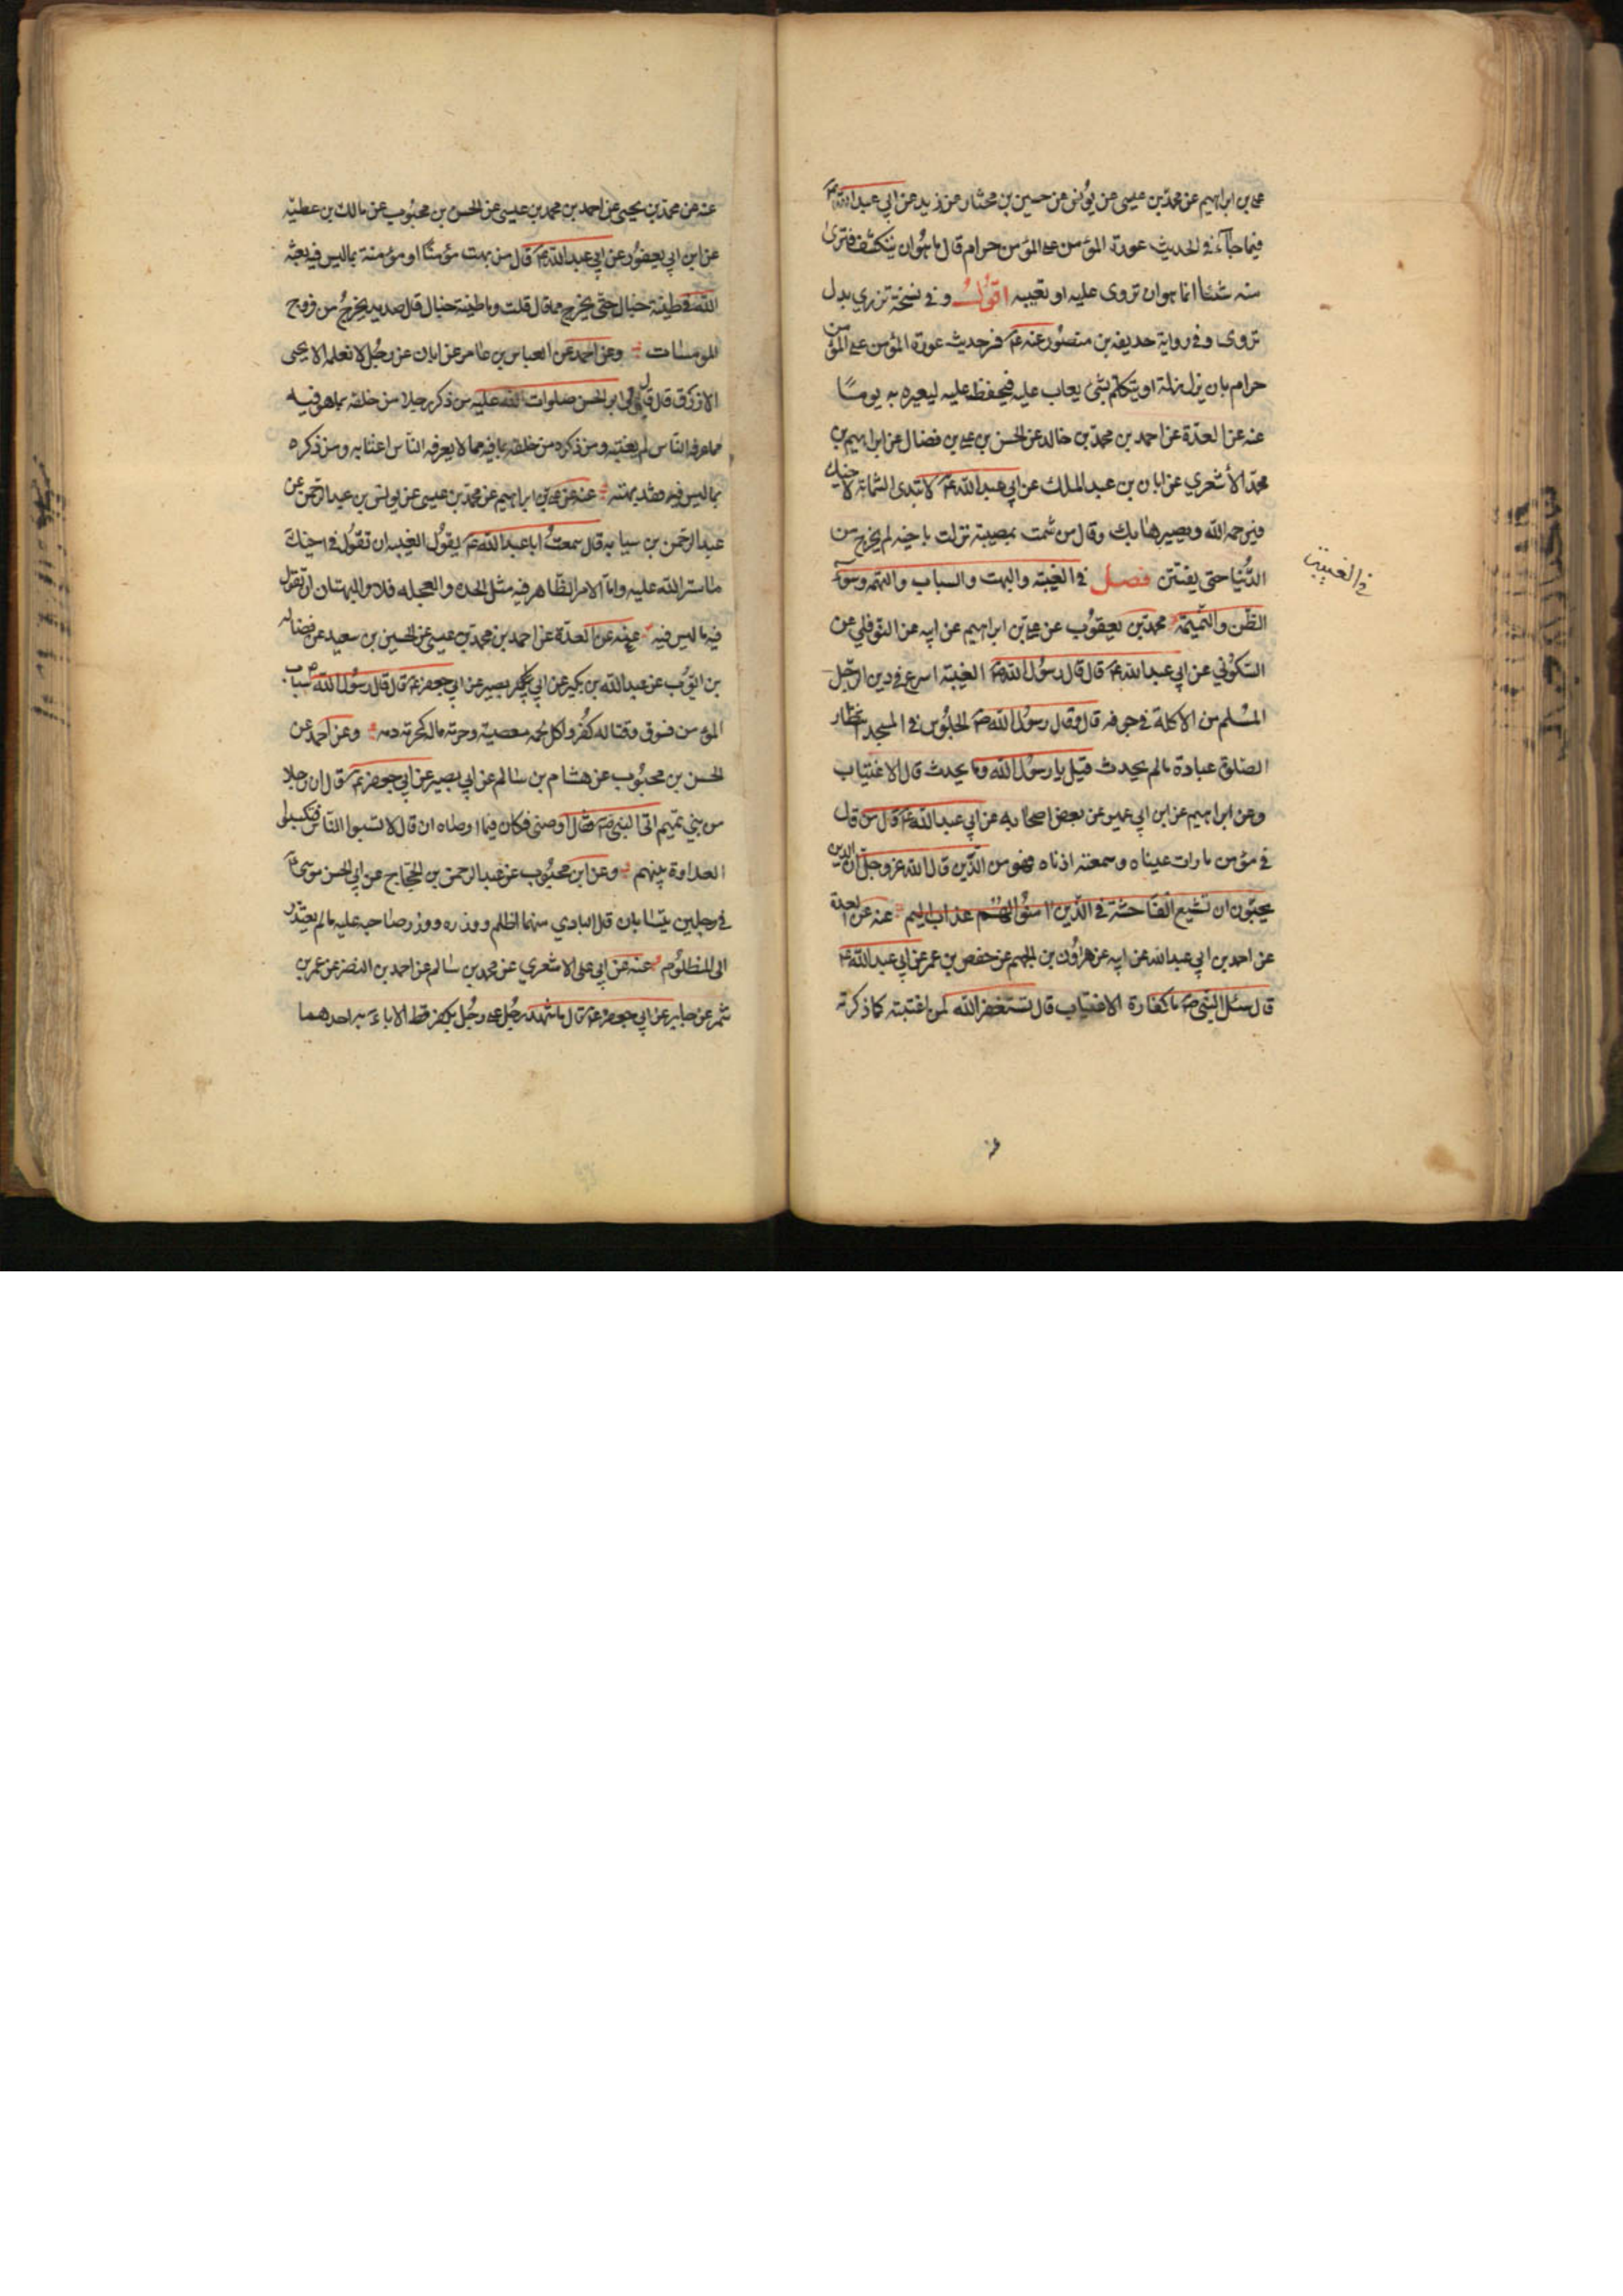 علي بن ابراهيم عن محمد بن عيسى عن يونس عن حسين بن مختار عن زيد عن ابي عبد الله ع
فيما جاء في الحديث عورة المؤمن على المؤمن حرام قال ما هو ان ينكشف فترى
منه شيئا انما هو ان تروى عليه او تعيبه اقول وفي نسخة تزري بدل
تروى وفي رواية حذيفه بن منصور عنه ع في حديث عورة المؤمن على المؤمن
حرام بان يزل بزلة او يتكلم بشئ يعاب عليه فيحفظ عليه ليعيره به يوما
عنه عن العدة عن احمد بن محمد بن خالد عن الحسن بن علي بن فضال عن ابراهيم بن
محمد الأشعري عن ابان بن عبد الملك عن ابي عبد الله ع لا تبدى الشماتة لاخيك
فيرحمه الله ويصيرها بك وقال من شمت بمصيبة نزلت باخيه لم يخرج من
الدنيا حتى يفتتن فصل في الغيبة والبهت والسباب والتهمه وسوء
الظن والنميمة محمد بن يعقوب عن علي بن ابراهيم عن ابيه عن النوفلي عن
السكوني عن ابي عبد الله ع قال قال رسول الله ص الغيبة اسرع في دين الرجل
المسلم من الاكلة في جوفه قال وقال رسول الله ص الجلوس في المسجد انتظار
الصلوة عبادة مالم يحدث قيل يا رسول الله وما يحدث قال الاغتياب
وعن ابراهيم عن ابن ابي عمير عن بعض اصحابه عن ابي عبد الله ع قال من قال
في مؤمن ما رات عيناه وسمعته اذناه فهو من الذين قال الله عز وجل ان الذين
يحبون ان تشيع الفاحشة في الذين امنوا لهم عذاب اليم عنه عن العدة
عن احمد بن ابي عبد الله عن ابيه عن هارون بن الجهم عن حفص بن عمر عن ابي عبد الله ع
قال سئل النبي ص ما كفارة الاغتياب قال تستغفر الله لمن اغتبته كما ذكرته
في الغيبت
عنه
عنه عن محمد بن يحيى عن احمد بن محمد بن عيسى عن الحسن بن محبوب عن مالك بن عطيه
عن ابن ابي يعفور عن ابي عبد الله ع قال من بهت مؤمنا او مؤمنة بما ليس فيه بعثه
الله في طينة خبال حتى يخرج مما قال قلت وما طينة خبال قال صديد يخرج من فروج
المومسات وعن احمد عن العباس بن عامر عن ابان عن رجل لا نعلمه الا يحيى
الازرق قال قال لي ابو الحسن صلوات الله عليه من ذكر رجلا من خلفه بما هو فيه
مما عرفه الناس لم يغتبه ومن ذكره من خلفه بما فيه مما لا يعرفه الناس اغتابه ومن ذكره
بما ليس فيه فقد بهته عنه عن علي بن ابراهيم عن محمد بن عيسى عن يونس بن عبد الرحمن عن
عبد الرحمن بن سيابه قال سمعت ابا عبد الله ع يقول الغيبه ان تقول في اخيك
ما ستر الله عليه واما الامر الظاهر فيه مثل الحده والعجله فلا والبهتان ان تقول
فيه ما ليس فيه عنه عن العدة عن احمد بن محمد بن عيسى عن الحسين بن سعيد عن فضاله
بن ايوب عن عبد الله بن بكير عن ابي بصير عن ابي جعفر ع قال قال رسول الله ص سباب
المؤمن فسوق وقتاله كفر واكل لحمه معصية وحرمة ماله كحرمة دمه وعن احمد عن
الحسن بن محبوب عن هشام بن سالم عن ابي بصير عن ابي جعفر ع قال ان رجلا
من بني تميم اتى النبي ص فقال اوصني فكان فيما اوصاه ان قال لا تسبوا الناس فتكسبوا
العداوة بينهم وعن ابن محبوب عن عبد الرحمن بن الحجاج عن ابي الحسن موسى ع
في رجلين يتسابان قال البادي منهما اظلم ووزره ووزر صاحبه عليه مالم يعتذر
الى المظلوم عنه عن ابي علي الاشعري عن محمد بن سالم عن احمد بن النضر عن عمر بن
شمر عن جابر عن ابي جعفر ع قال ما شهد رجل على رجل بكفر قط الا باء به احدهما